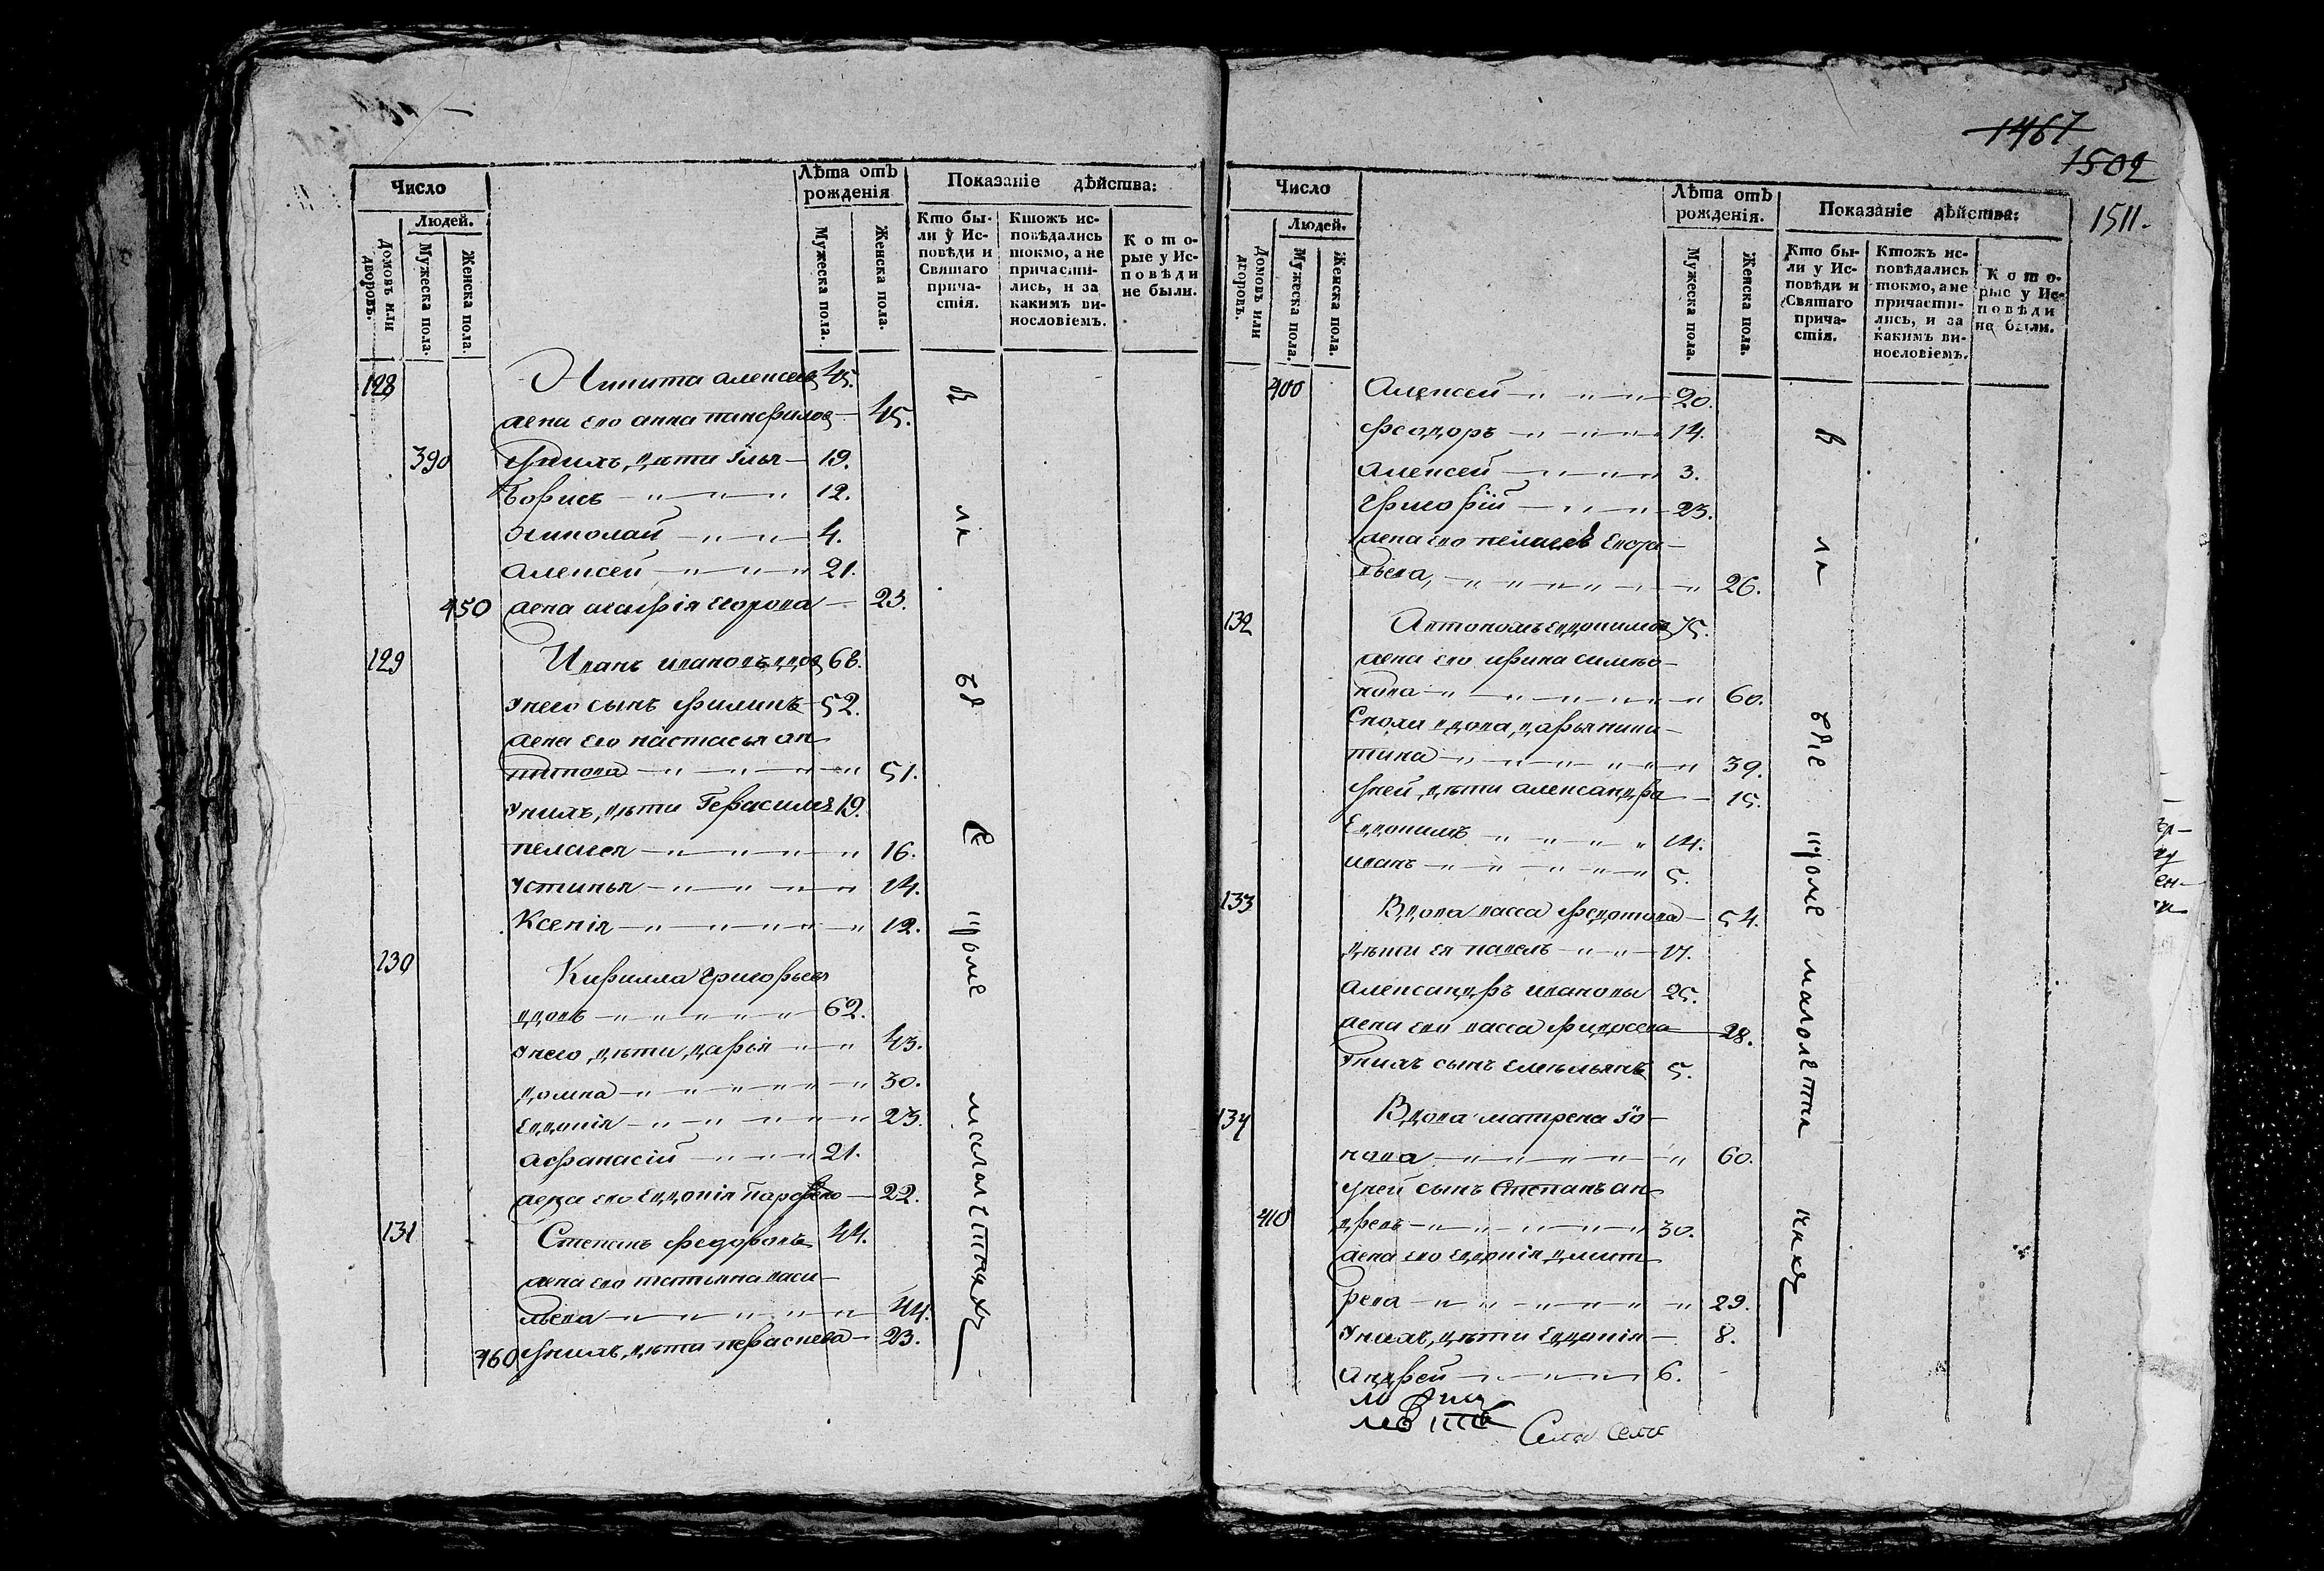 Число
Людей.
Домовъ или дворовъ.
Мужеска пола.
Женска пола.
Лѣта отъ рожденія
Мужеска пола.
Женска пола.
Показаніе дѣйства:
Кто бы-
ли у Ис-
повѣди и
Святаго
прича-
стія.
Ктожъ ис-
повѣдались
токмо, а не
причасти-
лись, и за
какимъ ви-
нословіемъ.
К о т о-
рые у Ис-
повѣди
не были.
128 Никита алексеевъ 45.
жена его анна панфилов 45.
390 Уних дѣти Илья 19.
Борисъ 12.
Николай 4.
Алексей 21.
450 жена Егорова 23.
129 Иванъ ивановъ вдов 68.
Унего сынъ филипъ 52.
жена его настасья ан
типова 51.
Унихъ дѣти Герасимъ 19.
пелагея 16.
Устинья 14.
Ксенія 12.
130 Кирилла Григорьевъ
вдовъ 62.
Унего дѣти дарья 43.
домна 30.
Евдокія 23.
афанасій 21.
жена его Евдокія 22.
131 Степанъ Федоровъ 44.
жена его татьяна васи-
льева 44.
460 Унихъ дѣти 23.
всѣ кроме малолетных
1467
1502
1511.
Число
Людей.
Домовъ или дворовъ.
Мужеска пола.
Женска пола.
Лѣта отъ рожденія.
Мужеска пола.
Женска пола.
Показаніе дѣйства:
Кто бы-
ли у Ис-
повѣди и
Святаго
прича-
стія.
Ктожъ ис-
повѣдались
токмо, а не
причасти-
лись, и за
какимъ ви-
нословіемъ.
К о т о-
рые у Ис-
повѣди
не были.
400 Алексей 20.
Феодоръ 14.
Алексей 3.
Григорій 23.
жена его пелагея
26.
132 Автономъ Евдокимов 75.
жена его ирина симио-
нова 60.
Сноха вдова дарья ники-
тина 39.
Уней дѣти александра 15.
Евдокимъ 14.
иванъ 5.
133 Вдова васса федотова 54.
дѣти ея павелъ 17.
Александръ ивановы 25.
жена его васса 28.
Унихъ сынъ Емельянъ 5.
134 Вдова матрена Іо-
нова 60.
Уней сынъ Степанъ ан
410 древъ 30.
жена его Евдокія дмит
рева 29.
Унихъ дѣти Евдокія 8.
Андрей 6.
кроме малолетних
Села